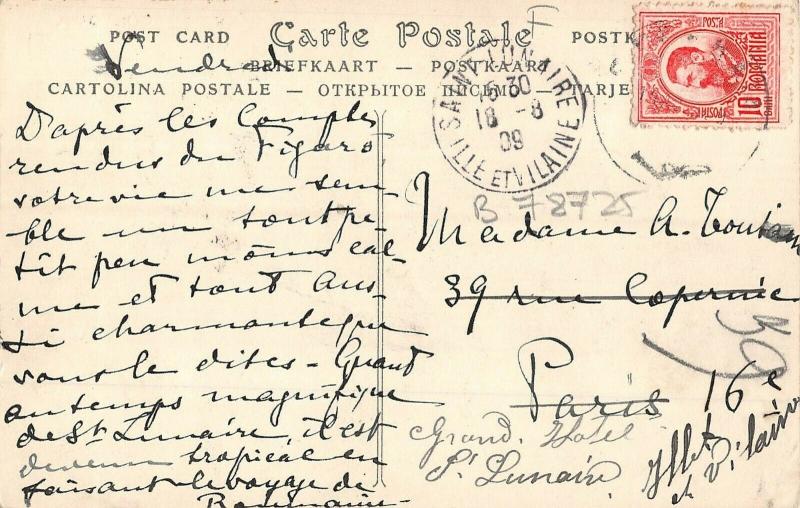 F
POST CARD Carte Postale POSTK
BRIEFKAART — POSTKAART
CARTOLINA POSTALE — ОТКРЫТОЕ ПИСЬМО —TARJE
Vendredi
SAINT LUNAIRE
16 30
18 -8
09
ILLE ET VILAINE
POSTA
10 ROMANIA
BANI
B 78725
D'après les Comptes
rendus du Figaro,
votre vie me sem-
ble un tout pe-
tit peu moins cal-
me et tout aus-
si charmante que
vous le dites - Quant
au temps magnifique
de St Lunaire, il est
devenu tropical en
faisant le voyage de
Roumanie -
Madame A.
39 rue Copernic
Paris 16e
50
Grand Hotel
St Lunaire
Illet
et Vilaine